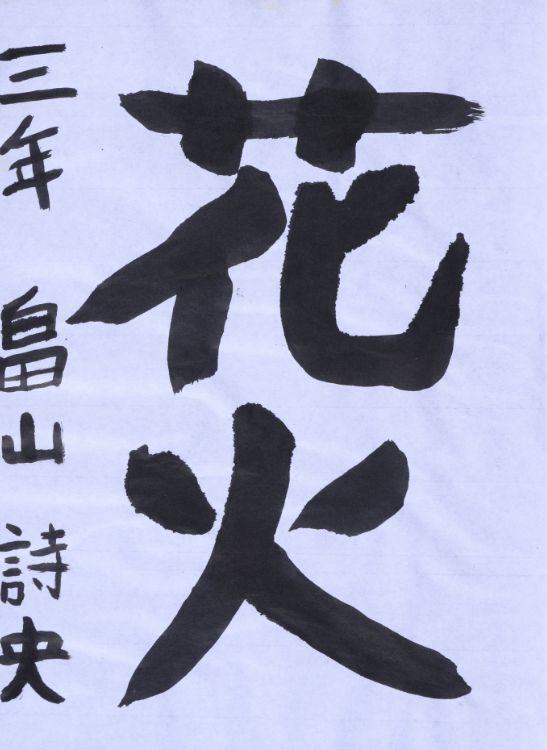 花火
三年 畠山 詩央